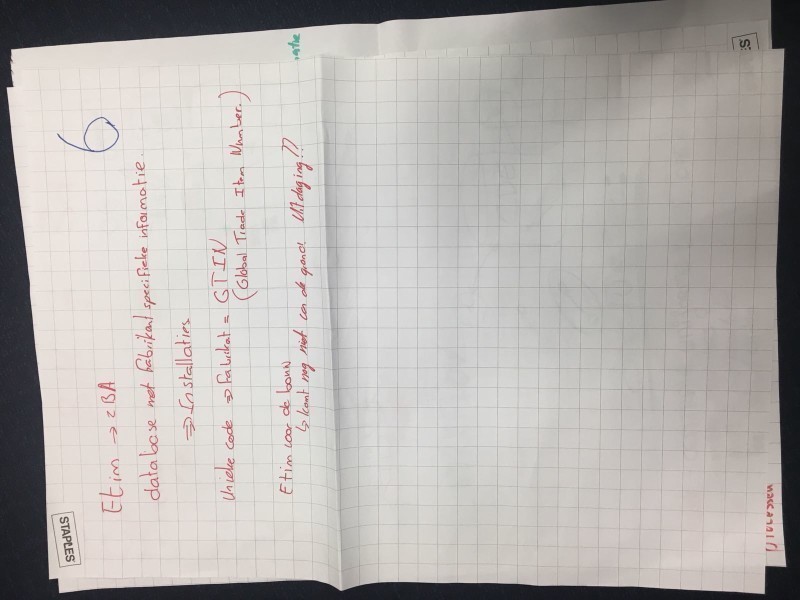 STAPLES
6
Etim → 2BA
database met fabrikant specifieke informatie.
⇒ Installaties
Unieke code ⇒ Fabrikat = GTIN
(Global Trade Item Number.)
Etim voor de bouw
↳ komt nog niet van de grond. Uitdaging!!
atie